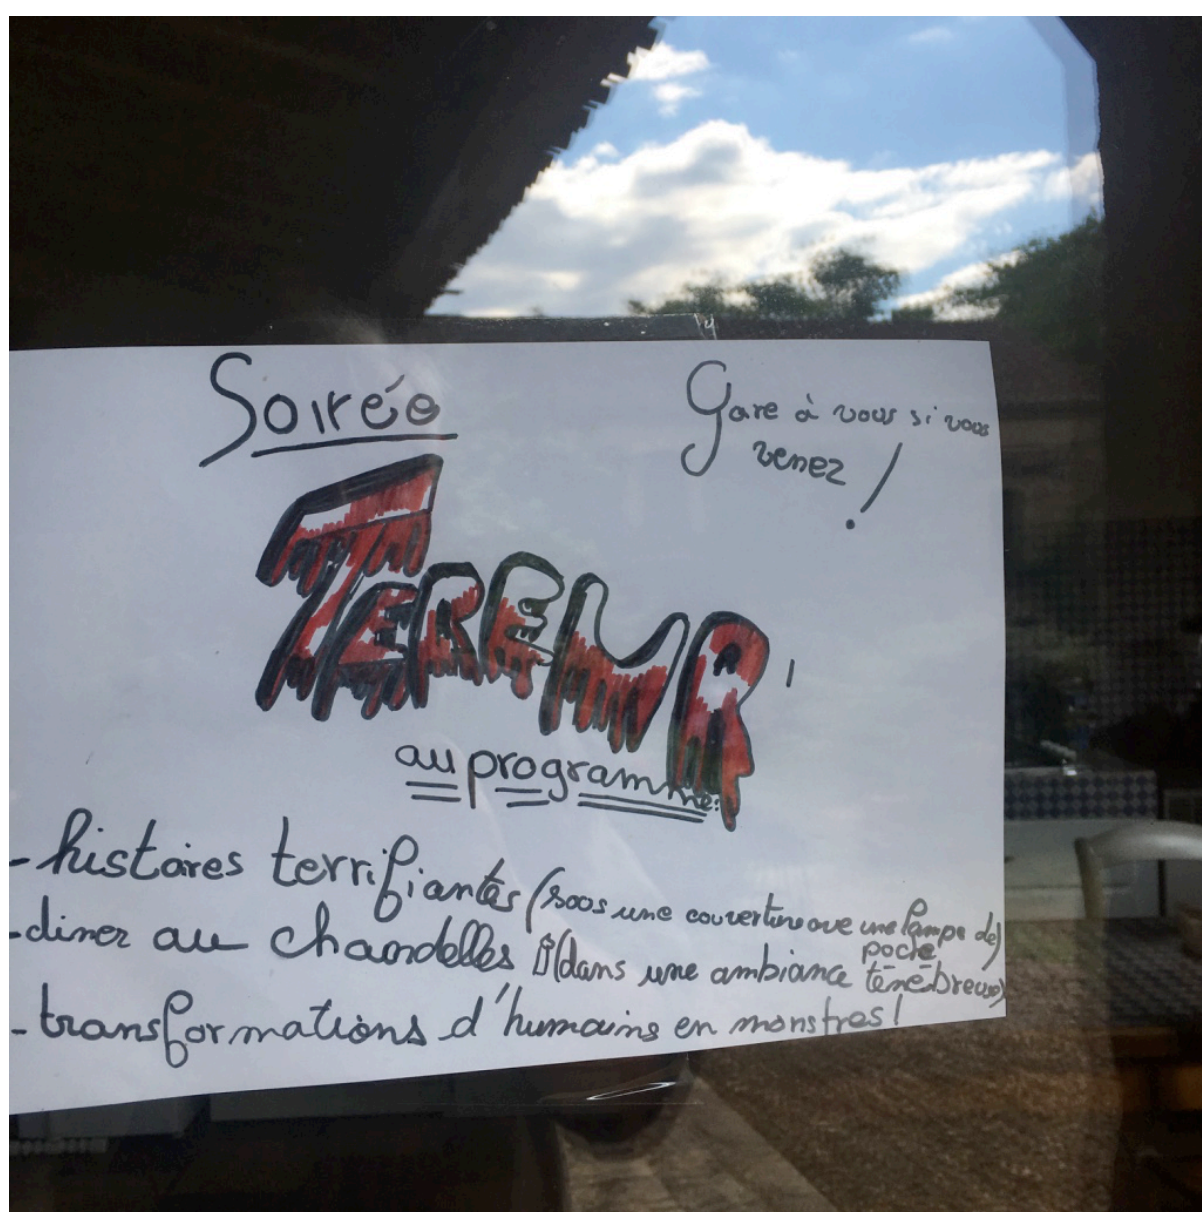 Soirée
Gare à vous si vous
venez !
TEREUR
au programme:
- histoires terrifiantes (sous une couverture ave une lampe de)
poche
- diner au chandelles (dans une ambiance ténébreuse)
- transformations d'humains en monstres!